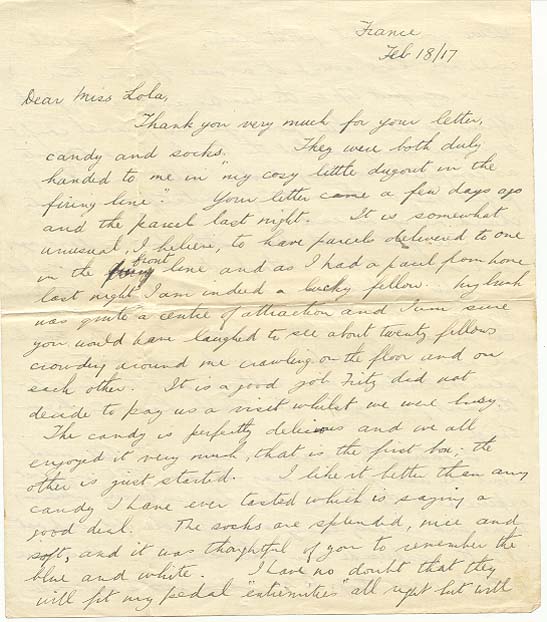 France
Feb 18/17
Dear Miss Lola,
Thank you very much for your letter,
candy and socks. They were both duly
handed to me in "my cosy little dugout in the
firing line". Your letter came a few days ago
and the parcel last night. It is somewhat
unusual, I believe, to have parcels delivered to one
in the front line and as I had a parcel from home
last night I am indeed a lucky fellow. My bunk
was quite a centre of attraction and I am sure
you would have laughed to see about twenty fellows
crowding around me crawling on the floor and on
each other. It is a good job Fritz did not
decide to pay us a visit whilst we were busy.
The candy is perfectly delicious and we all
enjoyed it very much, that is the first box; the
other is just started. I like it better than any
candy I have ever tasted which is saying a
good deal. The socks are splendid, nice and
soft, and it was thoughtful of you to remember the
blue and white. I have no doubt that they
will fit my pedal "extremities" all right but will